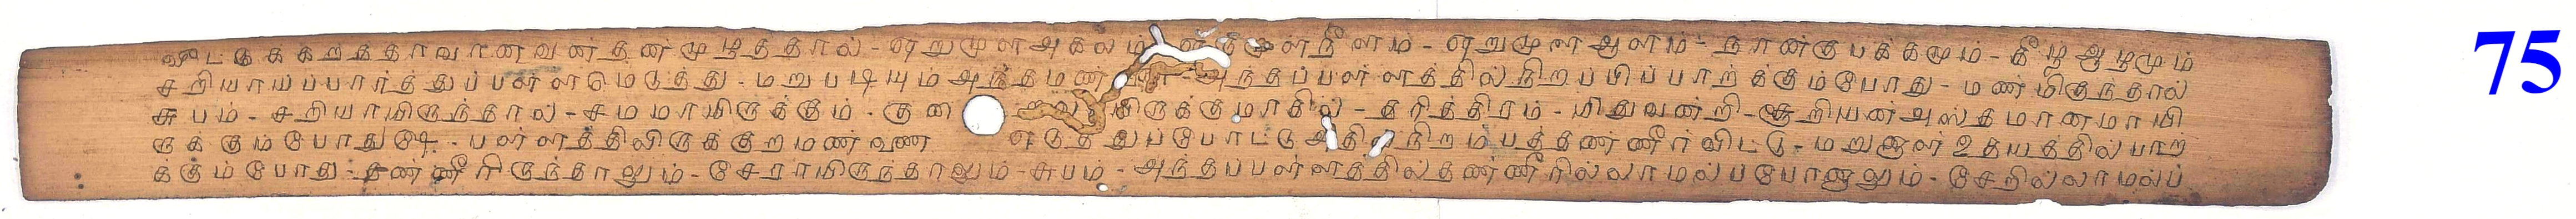 வீட்டுக்கற்த்தாவானவன் தன் முழத்தால் - ஏறுமுள அகலம் - ஏறுமுள ஆளம் - நான்கு பக்கமும் - கீழ ஆழமும்
சறியாய்ப்பார்த்துப் பள்ளமெடுத்து - மறுபடியும் அந்தமண் அந்தப்பள்ளத்தில் நிறப்பிப்பாற்க்கும்போது - மண் மிகுந்தால்
சுபம் - சறியாயிருந்தால் - சமமாயிருக்கும் - யிருக்குமாகில் - தரித்திரம் - யிதுவன்றி - சூறியன் அஸ்தமானமாயி
ருக்கும்போது - பள்ளத்திலிருக்குறமண்ணை எடுத்துப்போட்டு நிறம்பத்தண்ணீர்விட்டு - மறுனாள் உதயத்தில் பாற்
க்கும்போது - தண்ணீரிருந்தாலும் - சேராயிருந்தாலும் - சுபம் - அந்தப்பள்ளத்தில் தண்ணீரில்லாமல்ப்போனாலும் - சேறில்லாமல்ப்
75